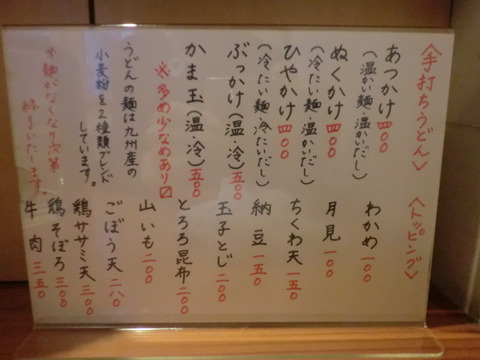 〈手打ちうどん〉
あつかけ 四〇〇
(温かい麺・温かいだし)
ぬくかけ 四〇〇
(冷たい麺・温かいだし)
ひやかけ 四〇〇
(冷たい麺・冷たいだし)
ぶっかけ(温・冷) 五〇〇
かま玉(温・冷) 五〇〇
※多め少なめあり〼
うどんの麺は九州産の
小麦粉を2種類ブレンド
しています。
*麺がなくなり次第
終了いたします。
〈トッピング〉
わかめ 一〇〇
月見 一〇〇
ちくわ天 一五〇
納豆 一五〇
玉子とじ 二〇〇
とろろ昆布 二〇〇
山いも 二〇〇
ごぼう天 二八〇
鶏ササミ天 三〇〇
鶏そぼろ 三〇〇
牛肉 三五〇